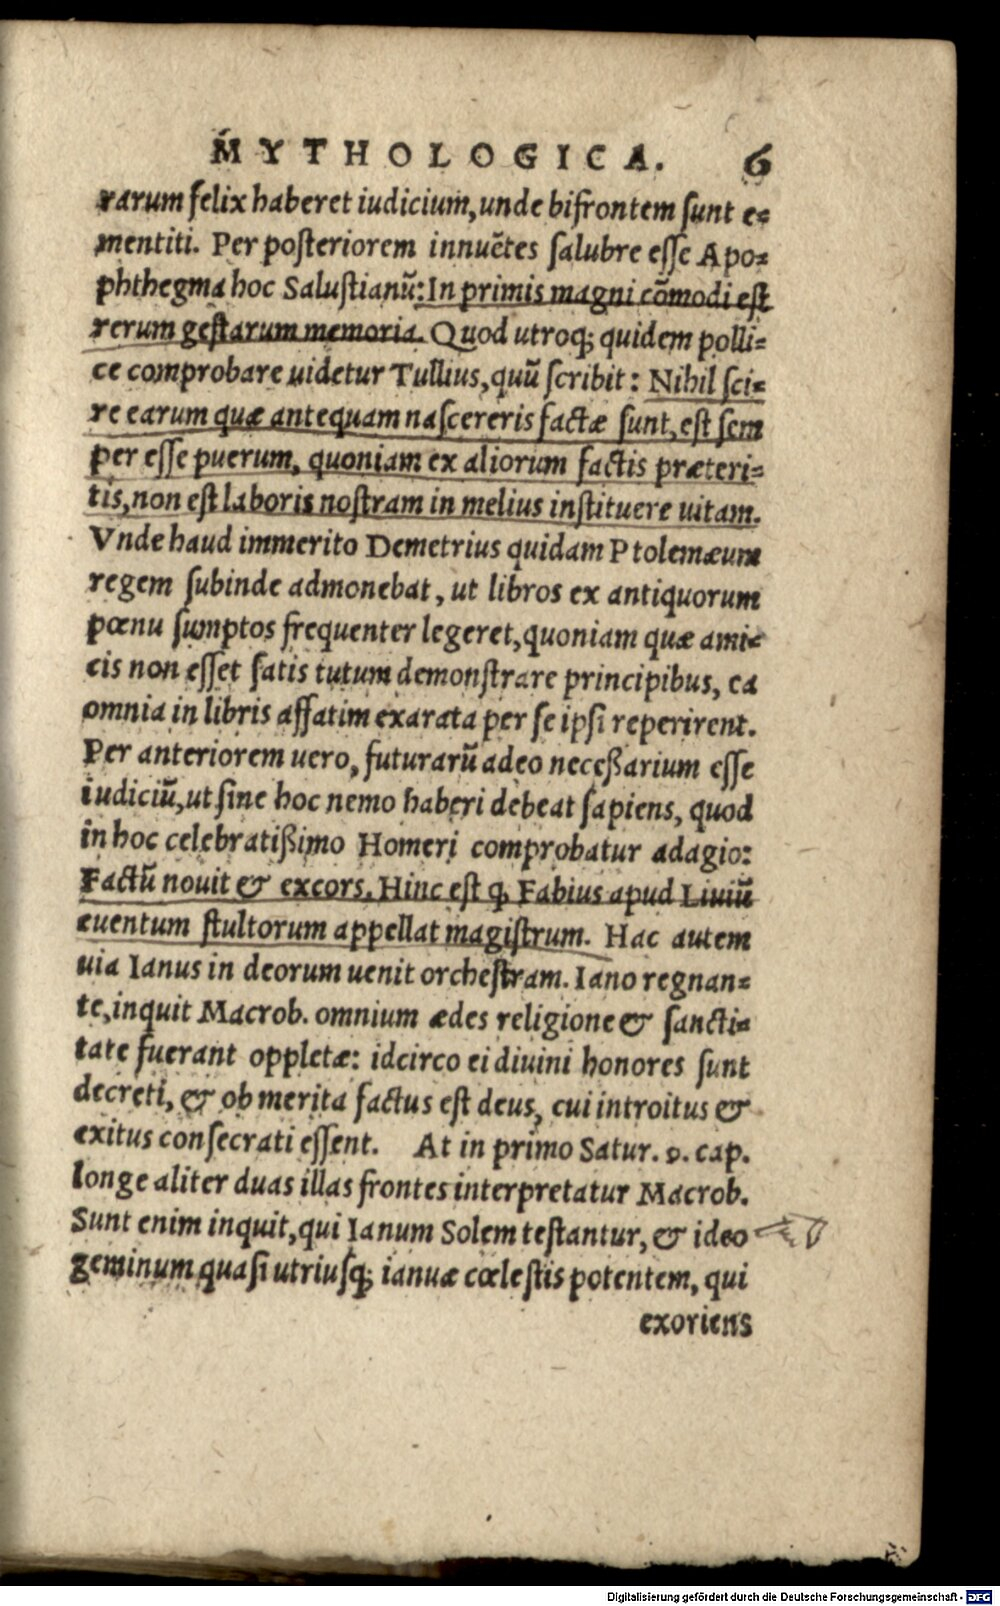 MYTHOLOGICA. 6
rarum felix haberet iudicium, unde bifrontem sunt e⸗
mentiti. Per posteriorem innuētes salubre esse Apo⸗
phthegma hoc Salustianū: In primis magni cōmodi est
rerum gestarum memoria. Quod utroq; quidem polli⸗
ce comprobare uidetur Tullius, quū scribit: Nihil sci⸗
re earum quæ antequam nascereris factæ sunt, est sem
per esse puerum, quoniam ex aliorum factis præteri⸗
tis, non est laboris nostram in melius instituere uitam.
Vnde haud immerito Demetrius quidam Ptolemæum
regem subinde admonebat, ut libros ex antiquorum
pœnu sumptos frequenter legeret, quoniam quæ ami⸗
cis non esset satis tutum demonstrare principibus, ea
omnia in libris affatim exarata per se ipsi reperirent.
Per anteriorem uero, futurarū adeo neceßarium esse
iudiciū, ut sine hoc nemo haberi debeat sapiens, quod
in hoc celebratißimo Homeri comprobatur adagio:
Factū nouit & excors. Hinc est q; Fabius apud Liuiū
euentum stultorum appellat magistrum. Hac autem
uia Ianus in deorum uenit orchestram. Iano regnan⸗
te, inquit Macrob. omnium ædes religione & sancti⸗
tate fuerant oppletæ: idcirco ei diuini honores sunt
decreti, & ob merita factus est deus, cui introitus &
exitus consecrati essent. At in primo Satur. 9. cap.
longe aliter duas illas frontes interpretatur Macrob.
Sunt enim inquit, qui Ianum Solem testantur, & ideo
geminum quasi utriusq; ianuæ cœlestis potentem, qui
exoriens
Digitalisierung gefördert durch die Deutsche Forschungsgemeinschaft - DFG